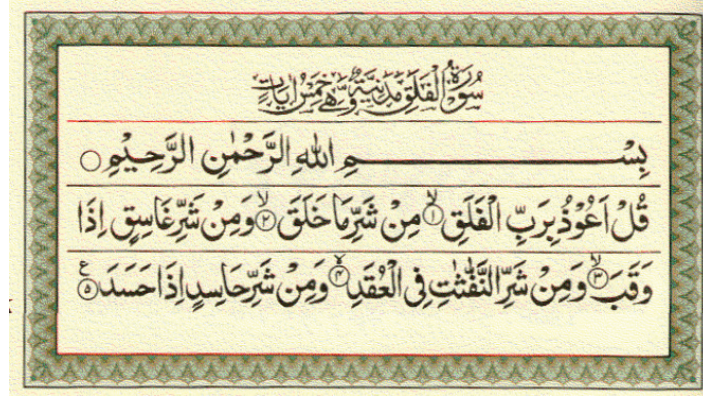 سُوْرَةُ الْفَلَقِ مَدَنِيَّةٌ وَّهِیَ خَمْسُ اٰيَاتٍ
بِسْمِ اللّٰهِ الرَّحْمٰنِ الرَّحِيْمِ ○
قُلْ اَعُوْذُ بِرَبِّ الْفَلَقِ ۙ‏﴿۱﴾ مِنْ شَرِّ مَا خَلَقَ ۙ‏﴿۲﴾ وَمِنْ شَرِّ غَاسِقٍ اِذَا
وَقَبَ ۙ‏﴿۳﴾ وَمِنْ شَرِّ النَّفّٰثٰتِ فِی الْعُقَدِ ۙ‏﴿۴﴾ وَمِنْ شَرِّ حَاسِدٍ اِذَا حَسَدَ ﴿۵﴾ ع